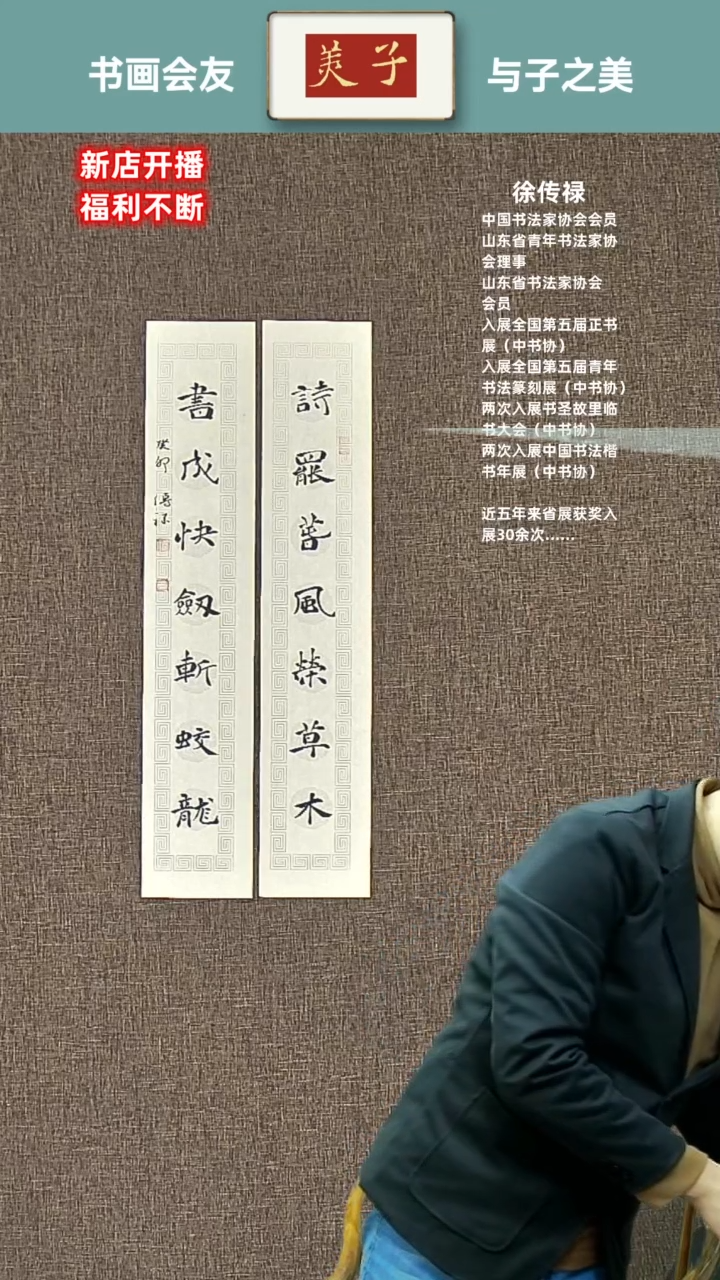 书画会友
羙子
与子之美
新店开播
福利不断
徐传禄
中国书法家协会会员
山东省青年书法家协
会理事
山东省书法家协会
会员
入展全国第五届正书
展（中书协）
入展全国第五届青年
书法篆刻展（中书协）
两次入展书圣故里临
书大会（中书协）
两次入展中国书法楷
书年展（中书协）
近五年来省展获奖入
展30余次......
詩罷萅風榮草木
書成快劒斬蛟龍
癸卯 傳祿